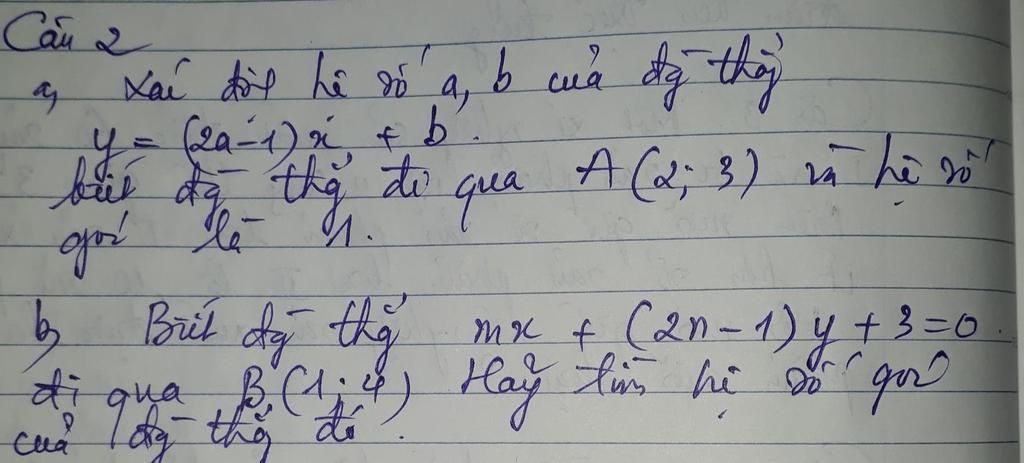 Câu 2
a, Xác định hệ số a, b của đg thẳg
y = (2a-1)x + b.
biết đg thẳg đi qua A(2; 3) và hệ số
góc là 1.
b, Biết đg thẳg mx + (2n-1)y + 3=0.
đi qua B(1; 4) Hãy tìm hệ số góc
của đg thẳg đó.